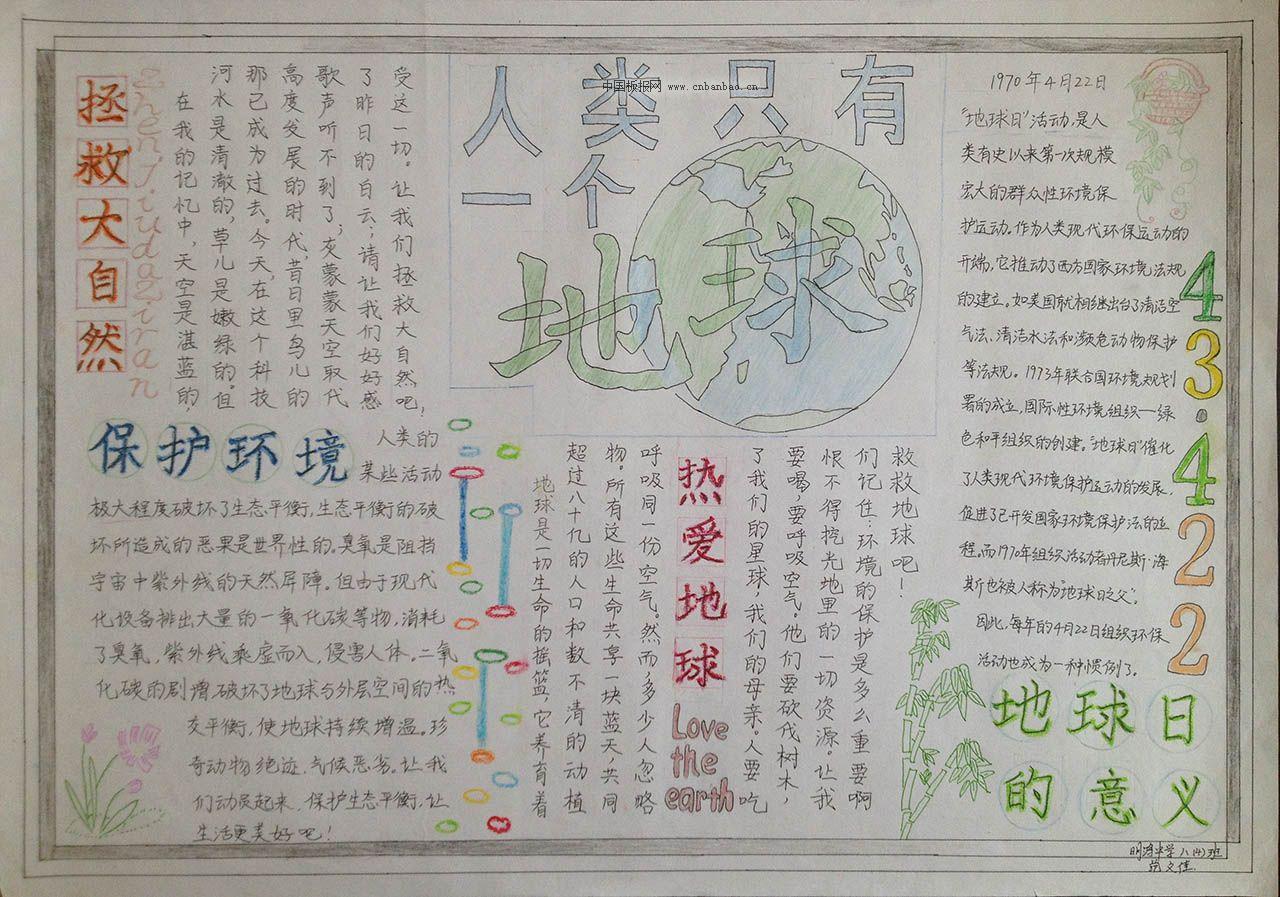 人类只有
一个
地球
中国板报网 www.cnbanbao.cn
拯救大自然
在我的记忆中,天空是湛蓝的,
河水是清澈的,草儿是嫩绿的。但
那已成为过去。今天,在这个科技
高度发展的时代,昔日里鸟儿的
歌声听不到了;灰蒙蒙天空取代
了昨日的白云;请让我们好好感
受这一切。让我们拯救大自然吧,
保护环境
人类的
某些活动
极大程度破坏了生态平衡,生态平衡的破
坏所造成的恶果是世界性的。臭氧是阻挡
宇宙中紫外线的天然屏障。但由于现代
化设备排出大量的一氧化碳等物,消耗
了臭氧,紫外线乘虚而入,侵害人体。二氧
化碳的剧增,破坏了地球与外层空间的热
交平衡,使地球持续增温。珍
奇动物绝迹,气候恶劣。让我
们动员起来,保护生态平衡,让
生活更美好吧!
热爱地球
Love
the
earth
地球是一切生命的摇篮,它养育着
超过八十亿的人口和数不清的动植
物。所有这些生命共享一块蓝天,共同
呼吸同一份空气。然而,多少人忽略
了我们的星球,我们的母亲。人要吃
要喝,要呼吸空气。他们要砍伐树木,
恨不得挖光地里的一切资源。让我
们记住:环境的保护是多么重要啊
救救地球吧!
1970年4月22日
"地球日"活动,是人
类有史以来第一次规模
宏大的群众性环境保
护运动。作为人类现代环保运动的
开端,它推动了西方国家环境法规
的建立。如美国就相继出台了清洁空
气法、清洁水法和濒危动物保护
等法规。1973年联合国环境规划
署的成立,国际性环境组织—绿
色和平组织的创建。"地球日"催化
了人类现代环境保护运动的发展,
促进了已开发国家环境保护法的进
程,而1970年组织活动者丹尼斯·海
斯也被人称为"地球日之父"。
因此,每年的4月22日组织环保
活动也成为一种惯例了。
43·422
地球日
的意义